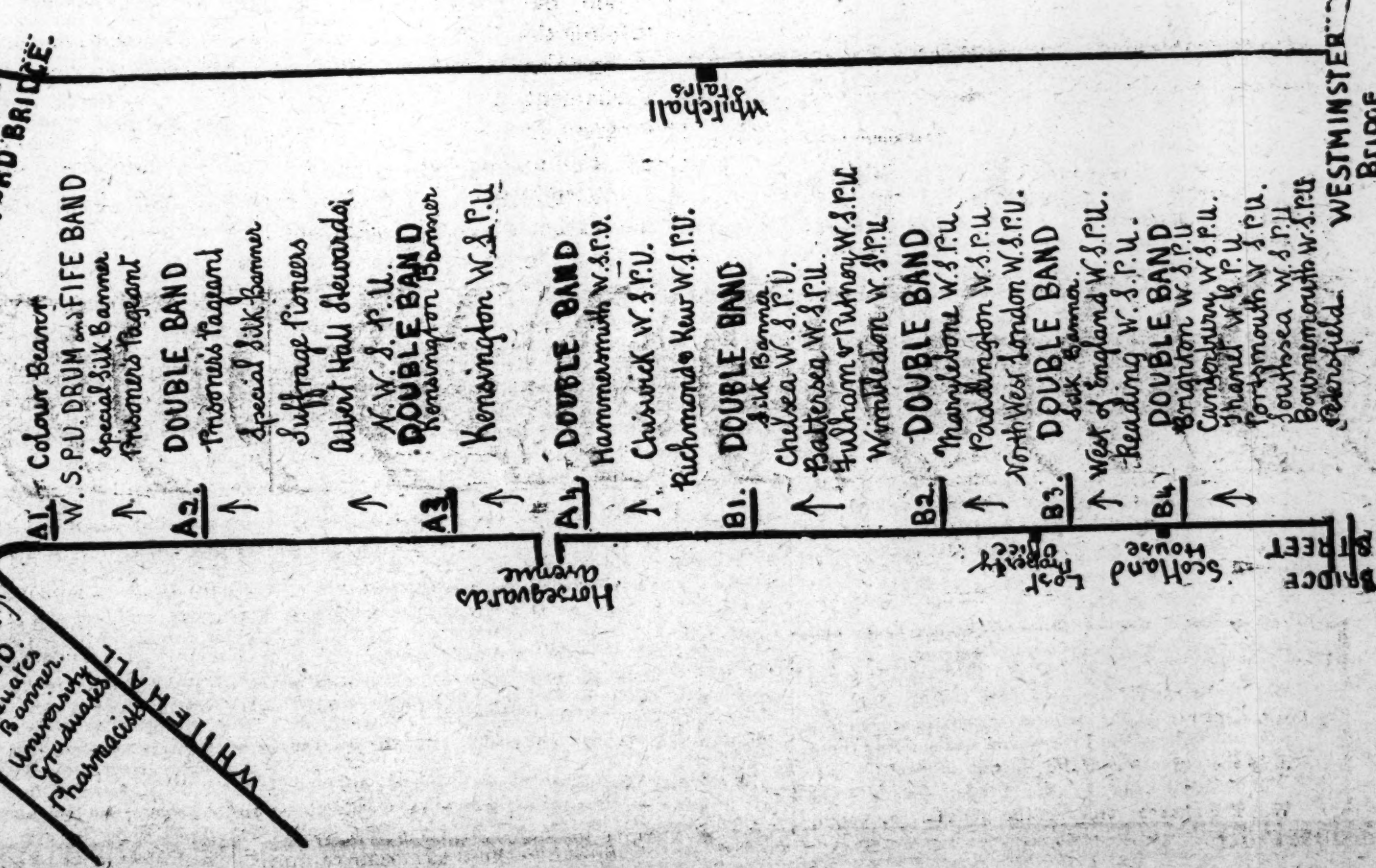 BRIDGE.
A1. Colour Bearer
W. S. P. U. DRUM and FIFE BAND
Special Silk Banner
Prisoners Pageant
A2. DOUBLE BAND
Prisoners Pageant
Special Silk Banner
Suffrage Pioneers
Albert Hall Stewards
N. W. S. P. U.
A3 DOUBLE BAND
Kensington Banner
Kensington W. S. P. U
A4 DOUBLE BAND
Hammersmith W. S. P. U.
Chiswick W. S. P. U.
Richmond & Kew W. S. P. U.
B1. DOUBLE BAND
Silk Banner
Chelsea W. S. P. U.
Battersea W. S. P. U.
Fulham & Putney W. S. P. U
Wimbledon W. S. P. U
B2. DOUBLE BAND
Marylebone W. S. P. U.
Paddington W. S. P. U
North West London W. S. P. U.
B3. DOUBLE BAND
Silk Banner
West of England W. S. P. U.
Reading W. S. P. U.
B4 DOUBLE BAND
Brighton W. S. P. U
Canterbury W. S. P. U.
Thanet W. S. P. U
Portsmouth W. S. P. U.
Southsea W. S. P. U
Bournemouth W. S. P. U
Petersfield.
WESTMINSTER
BRIDGE
Whitehall
Stairs
Horseguards
avenue
Lost
Property
Office
Scotland
House
BRIDGE STREET
WHITEHALL
Banner.
University
Graduates
Pharmacists